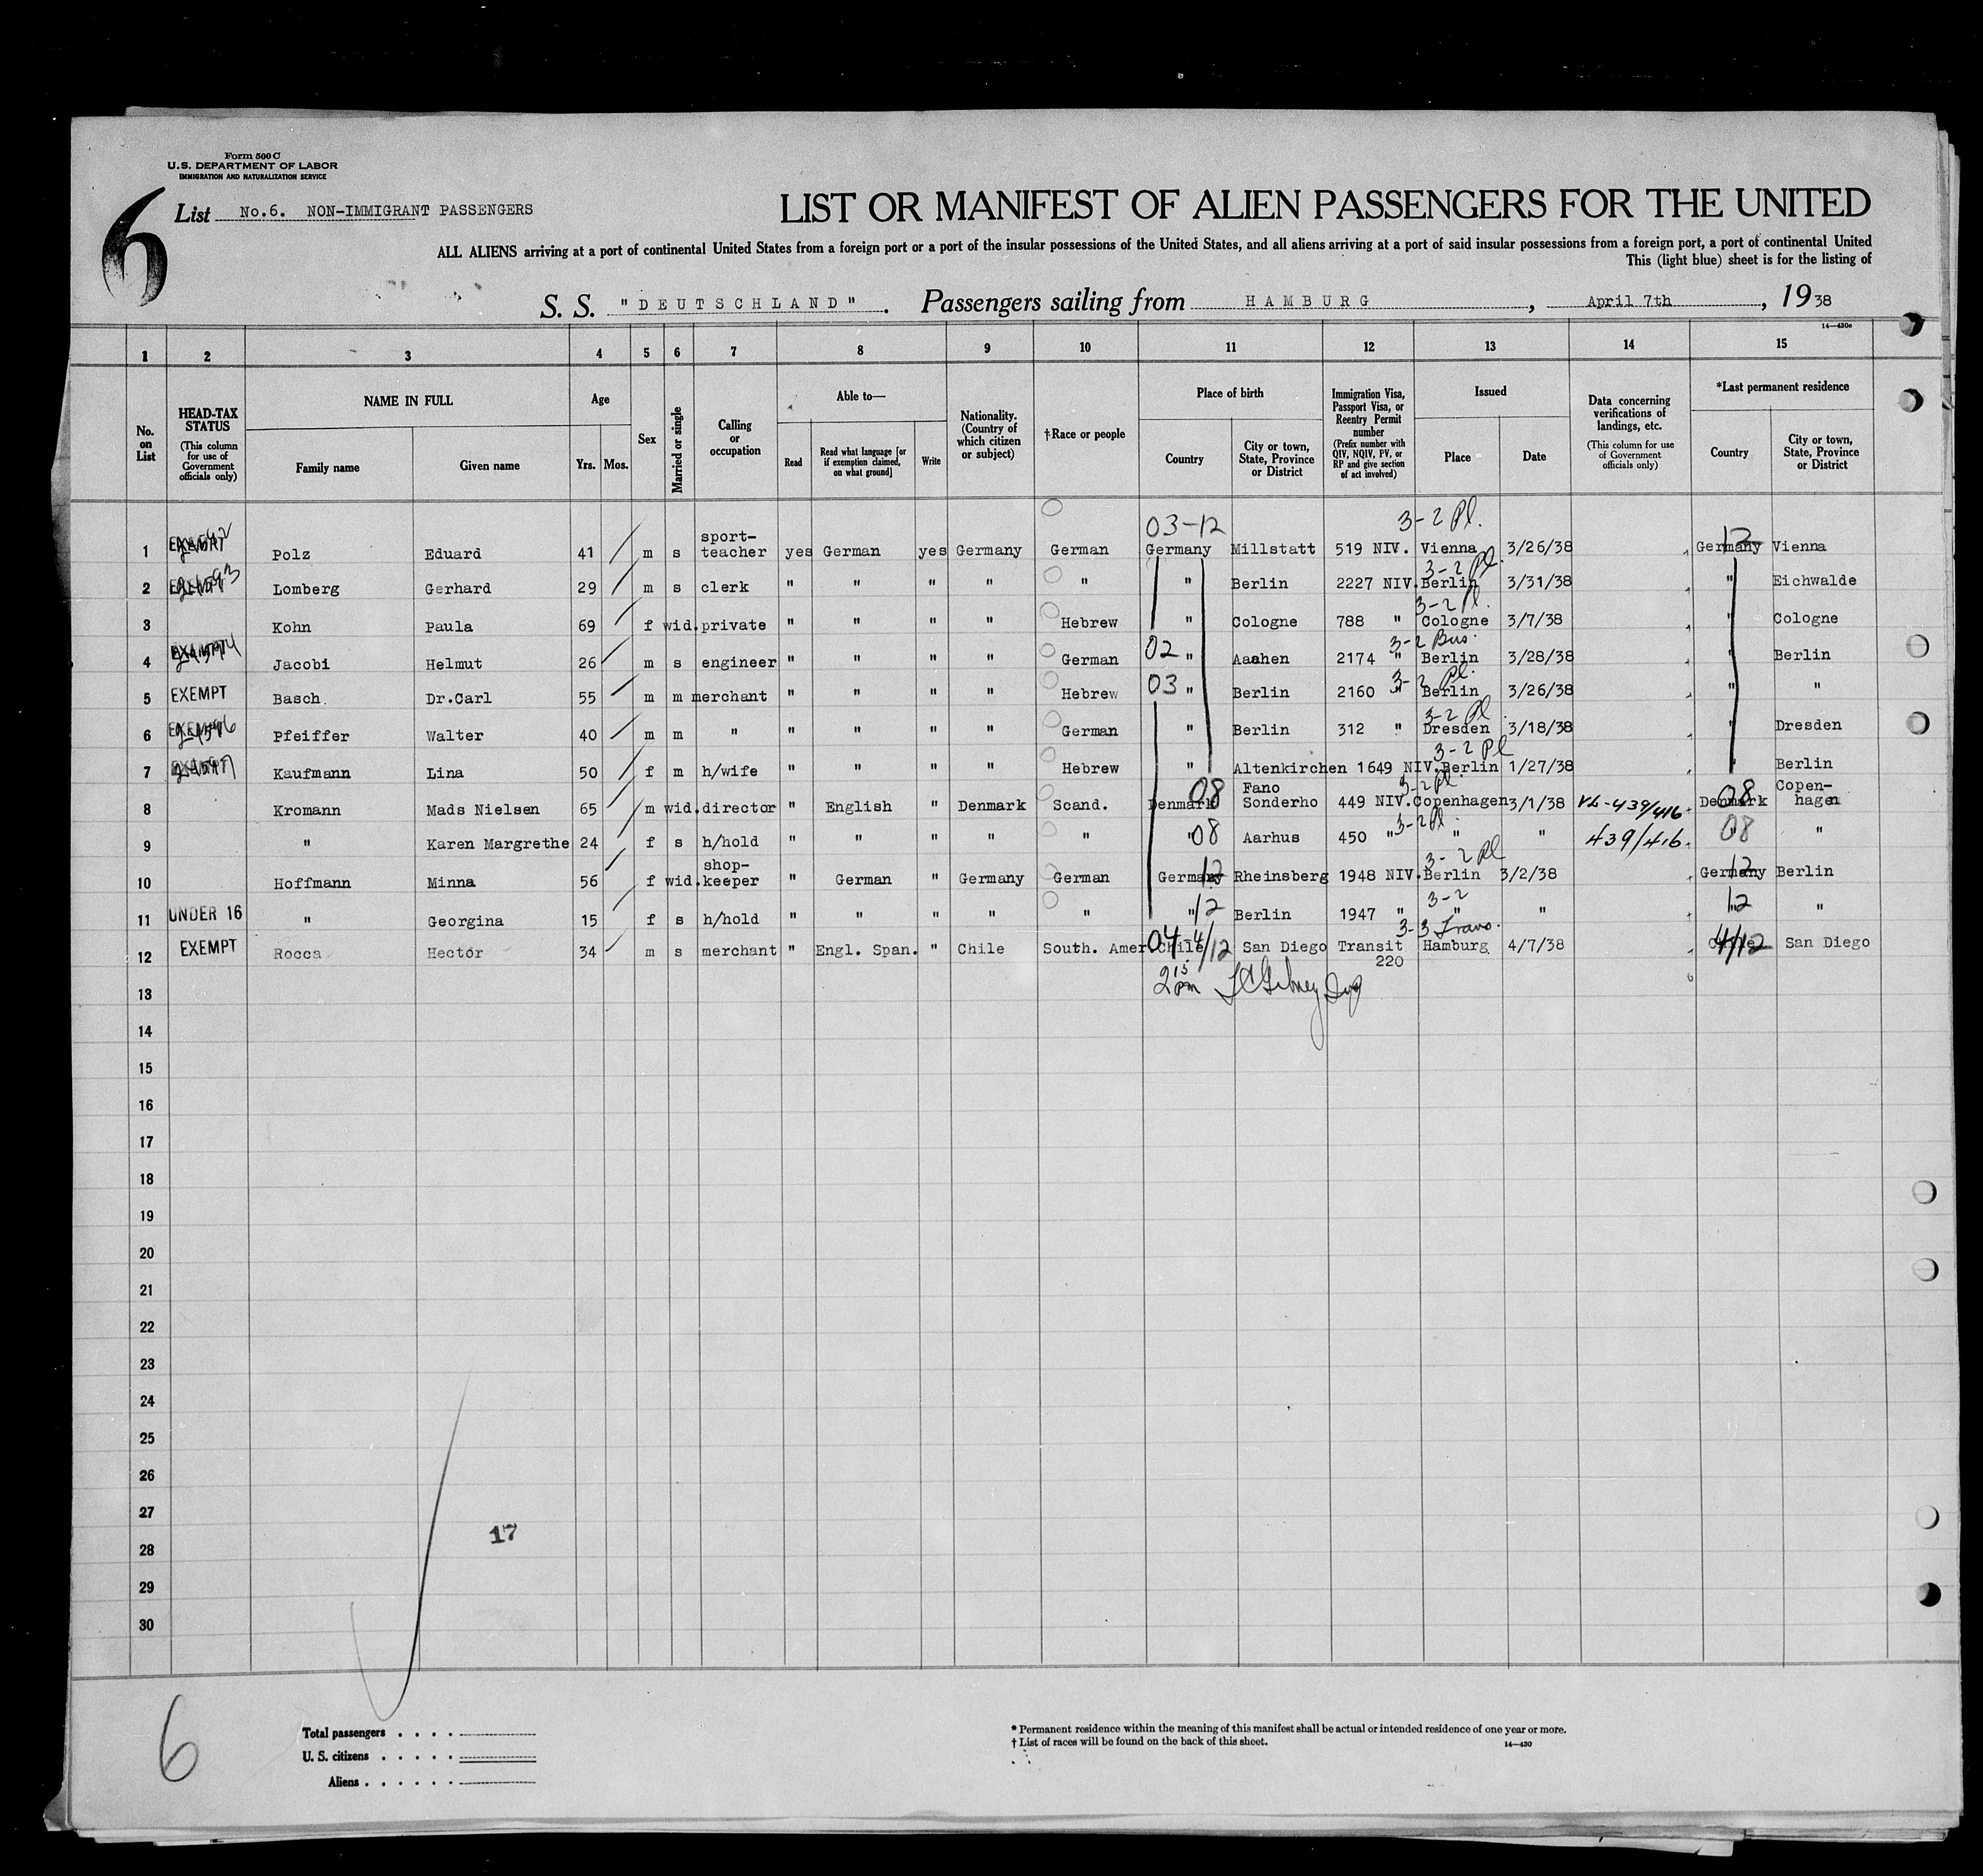 Form 500 C
U.S. DEPARTMENT OF LABOR
IMMIGRATION AND NATURALIZATION SERVICE
6
List No.6. NON-IMMIGRANT PASSENGERS
LIST OR MANIFEST OF ALIEN PASSENGERS FOR THE UNITED
ALL ALIENS arriving at a port of continental United States from a foreign port or a port of the insular possessions of the United States, and all aliens arriving at a port of said insular possessions from a foreign port, a port of continental United
This (light blue) sheet is for the listing of
S. S. "DEUTSCHLAND". Passengers sailing from HAMBURG, April 7th, 1938
14—430c
1 2 3 4 5 6 7 8 9 10 11 12 13 14 15
No. on List
HEAD-TAX STATUS (This column for use of Government officials only)
NAME IN FULL
Family name Given name
Age
Yrs. Mos.
Sex
Married or single
Calling or occupation
Able to—
Read
Read what language [or if exemption claimed, on what ground]
Write
Nationality. (Country of which citizen or subject)
†Race or people
Place of birth
Country
City or town, State, Province or District
Immigration Visa, Passport Visa, or Reentry Permit number (Prefix number with QIV, NQIV, PV, or RP and give section of act involved)
Issued
Place Date
Data concerning verifications of landings, etc. (This column for use of Government officials only)
*Last permanent residence
Country
City or town, State, Province or District
03-12 3-2 Pl.
1 EXEMPT Polz Eduard 41 m s sport-teacher yes German yes Germany German Germany Millstatt 519 NIV. Vienna 3/26/38 Germany 12 Vienna
3-2 Pl.
2 EXEMPT Lomberg Gerhard 29 m s clerk " " " " " " Berlin 2227 NIV. Berlin 3/31/38 " Eichwalde
3-2 Pl.
3 Kohn Paula 69 f wid. private " " " " Hebrew " Cologne 788 " Cologne 3/7/38 " Cologne
3-2 Bus.
4 EXEMPT Jacobi Helmut 26 m s engineer " " " " German 02 " Aachen 2174 " Berlin 3/28/38 " Berlin
3-2 Pl.
5 EXEMPT Basch Dr.Carl 55 m m merchant " " " " Hebrew 03 " Berlin 2160 " Berlin 3/26/38 " "
3-2 Pl.
6 EXEMPT Pfeiffer Walter 40 m m " " " " " German " Berlin 312 " Dresden 3/18/38 " Dresden
3-2 Pl
7 EXEMPT Kaufmann Lina 50 f m h/wife " " " " Hebrew " Altenkirchen 1649 NIV. Berlin 1/27/38 " Berlin
3-2 Pl.
8 Kromann Mads Nielsen 65 m wid. director " English " Denmark Scand. Denmark 08 Fano Sonderho 449 NIV. Copenhagen 3/1/38 439/416 Denmark 08 Copen-hagen
3-2 Pl.
9 " Karen Margrethe 24 f s h/hold " " " " " " 08 Aarhus 450 " " " 439/416 08 "
3-2 Pl
10 Hoffmann Minna 56 f wid. shop-keeper " German " Germany German Germany 12 Rheinsberg 1948 NIV. Berlin 3/2/38 Germany 12 Berlin
3-2
11 UNDER 16 " Georgina 15 f s h/hold " " " " " " 12 Berlin 1947 " " " " 12 "
3-3 Trans.
12 EXEMPT Rocca Hector 34 m s merchant " Engl. Span. " Chile South. Amer 04 Chile 4/12 San Diego Transit 220 Hamburg 4/7/38 Chile 4/12 San Diego
2 15 pm
13
14
15
16
17
18
19
20
21
22
23
24
25
26
27
17
28
29
30
6
Total passengers
U. S. citizens
Aliens
* Permanent residence within the meaning of this manifest shall be actual or intended residence of one year or more.
† List of races will be found on the back of this sheet.
14—430